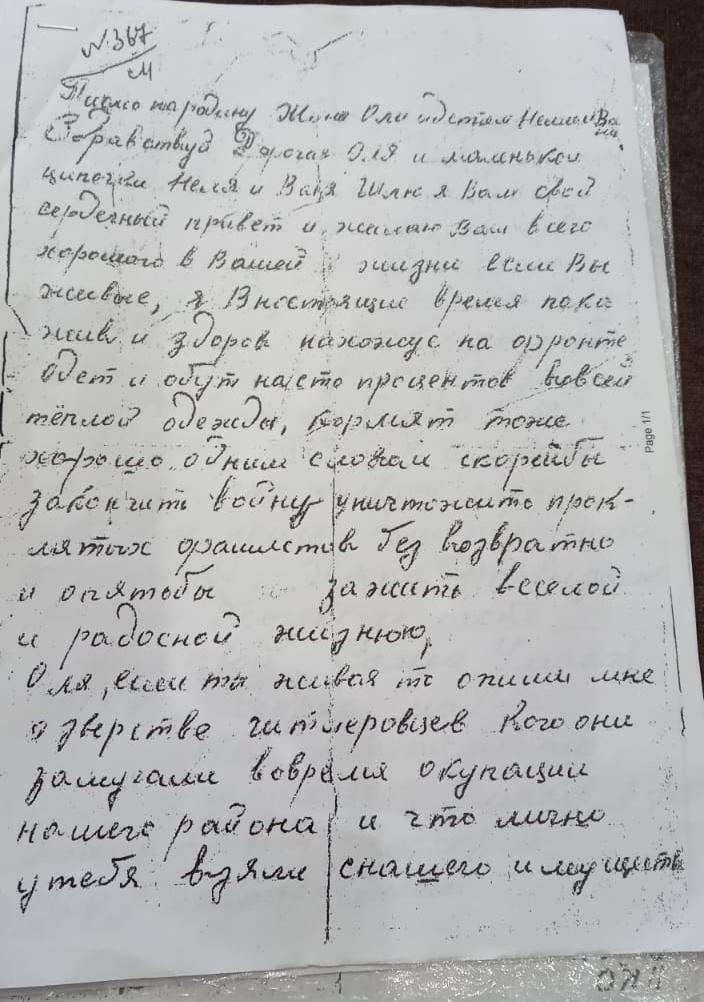 № 367
М
Письмо на родину Жене Оли и детям Нелли и Ва
не.
Здравствуй Дорогая Оля и маленькои
ципочки Неля и Ваня Шлю я Вам свой
сердечный привет и желаю Вам всего
хорошого в Вашей жизни если Вы
живые, я Внастоящие время пока
жив и здоров нахожус на фронте
Одет и обут насто процентов вовсей
тёплой одежды, кормят тоже
хорошо одним словом скорейбы
закончить войну уничтожить прок-
лятых фашистов без возвратно
и опятьбы зажить веселой
и радосной жизнюю,
Оля, если ты живая то опиши мне
о зверстве гитлеровцев Кого они
замучали вовремя окупации
нашего района и что лично
у тебя взяли снашего имущиств
Page 1/1